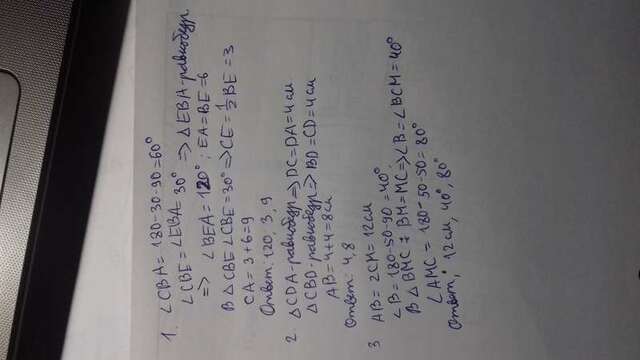 1. ∠CBA = 180-30-90 = 60°
∠CBE = ∠EBA = 30° => △EBA-равнобедр
=> ∠BEA = 120°; EA=BE=6
В △CBE ∠CBE = 30° => CE = 1/2 BE = 3
CA = 3+6=9
Ответ: 120, 3, 9
2. △CDA-равнобедр => DC=DA=4 см
△CBD-равнобедр => BD=CD=4см
AB=4+4=8см
Ответ: 4,8
3 AB = 2CM = 12см
∠B = 180-50-90 = 40°
В △BMC : BM=MC => ∠B = ∠BCM = 40°
∠AMC = 180-50-50 = 80°
Ответ: 12см, 40°, 80°